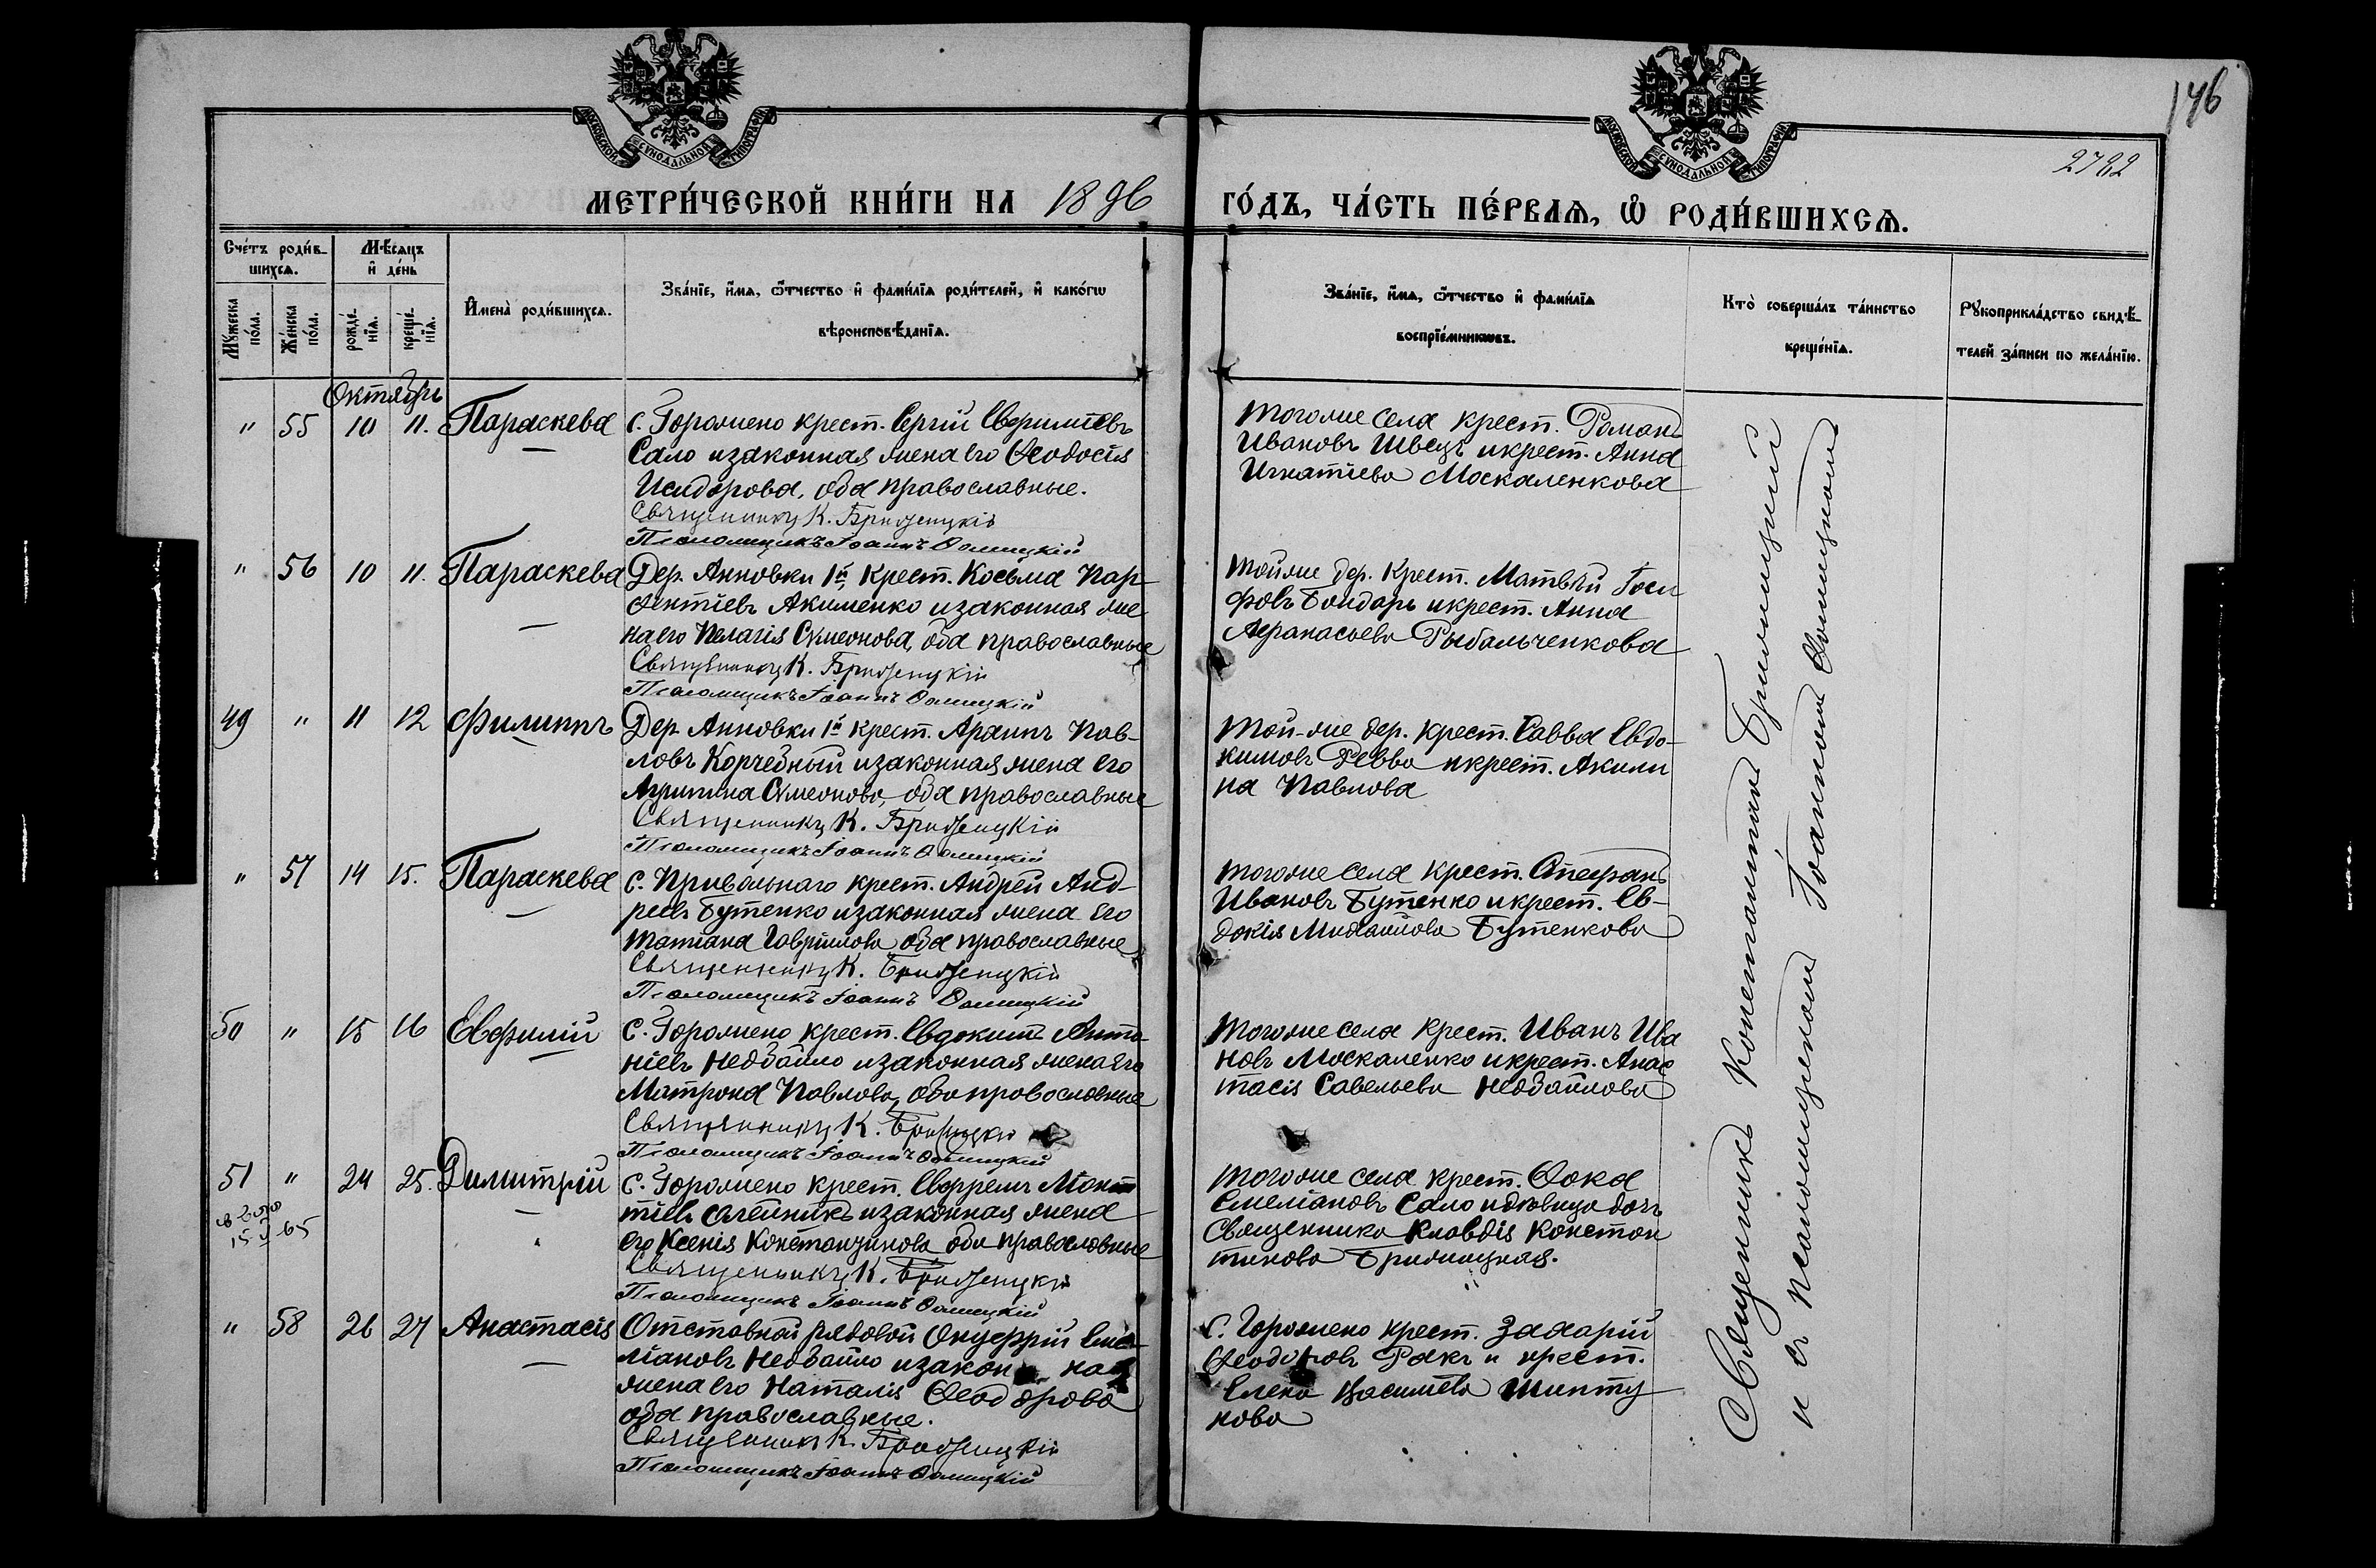 146
2722
МОСКОВСКОЙ СѴНОДАЛЬНОЙ ТИПОГРАФІИ
МОСКОВСКОЙ СѴНОДАЛЬНОЙ ТИПОГРАФІИ
МЕТРИ́ЧЕСКОЙ КНИ́ГИ НА 1896 ГО́ДЪ, ЧА́СТЬ ПЕ́РВАѦ, Ѡ҆ РОДИ́ВШИХСѦ.
Сче́тъ роди́в-
шихсѧ.
Мѣ́сѧцъ
и҆ де́нь
Мꙋ́жеска
по́ла.
Же́нска
по́ла.
рожде́-
нїѧ.
креще́-
нїѧ.
И҆мена̀ роди́вшихсѧ.
Зва́нїе, и҆́мѧ, ѻ҆́тчество и҆ фами́лїѧ роди́телей, и҆ како́гѡ
вѣроисповѣ́данїѧ.
Зва́нїе, и҆́мѧ, ѻ҆́тчество и҆ фами́лїѧ
воспрїе́мникѡвъ.
Кто̀ соверша́лъ та́инство
креще́нїѧ.
Рꙋкоприкла́дство свидѣ́-
телей за́писи по жела́нїю.
Октябрь
" 55 10 11. Параскева
с. Горожено крест. Сергій Евфиміевъ
Сало и законная жена его Ѳеодосія
Исидорова, оба православные.
Священникъ К. Бржезицкій
Псаломщикъ Іоаннъ
тогоже села крест. Романъ
Ивановъ Швецъ и крест. Анна
Игнатіева Москаленкова
" 56 10 11. Параскева
Дер. Анновки 1й, крест. Косьма Пар-
ѳентіевъ Акименко и законная же
на его Пелагія Сѵмеонова, оба православные
Священникъ К. Бржезицкій
Псаломщикъ Іоаннъ
тойже дер. крест. Матвѣй Іоси
фовъ Бондарь и крест. Анна
Афанасьева Рыбальченкова
49 " 11 12 Филиппъ
Дер. Анновки 1й крест. Архипъ Пав-
ловъ Корчебный и законная жена его
Агриппина Сѵмеонова, оба православные
Священникъ К. Бржезицкій
Псаломщикъ Іоаннъ
той-же дер. крест. Савва Евдо-
кимовъ Ревва и крест. Акили
на Павлова
" 57 14 15. Параскева
с. Привольнаго крест. Андрей Анд-
реевъ Бутенко и законная жена его
Татіана Гавріилова оба православные
Священникъ К. Бржезицкій
Псаломщикъ Іоаннъ
тогоже села крест. Стефанъ
Ивановъ Бутенко и крест. Ев-
докія Михайлова Бутенкова
50 " 15 16 Евфимій
с. Горожено крест. Евдокимъ Анто-
ніевъ Недбайло и законная жена его
Матрона Павлова, оба православные
Священникъ К. Бржезицкій
Псаломщикъ Іоаннъ
тогоже села крест. Иванъ Ива
новъ Москаленко и крест. Анас
тасія Савельева Недбайлова
51 " 24 25. Димитрій
15 65
с. Горожено крест. Евфремъ
Олейникъ и законная жена
его Ксенія Константинова оба православные
Священникъ К. Бржезицкій
Псаломщикъ Іоаннъ
тогоже села крест. Ѳока
Емеліановъ Сало и дѣвица дочь
Священника Клавдія Констан
тинова Бржезицкая.
" 58 26 27 Анастасія
Отставной рядовой Онуфрій Еме-
ліановъ Недбайло и закон ная
жена его Наталія Ѳеодорова
оба православные.
Священникъ К. Бржезицкій
Псаломщикъ Іоаннъ
с. Горожено крест. Захарій
Ѳеодоровъ Ракъ и крест.
Елена Василіева
нова
Священникъ Константинъ Бржезицкій
и съ псаломщикомъ Іоанномъ